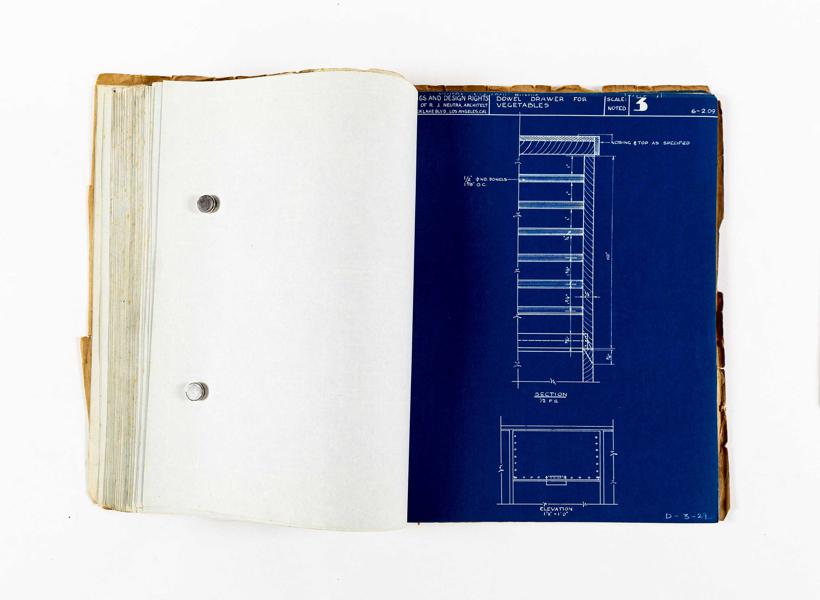 GS AND DESIGN RIGHTS
OF R. J. NEUTRA, ARCHITECT
LAKE BLVD, LOS ANGELES, CAL
DOWEL DRAWER FOR
VEGETABLES
SCALE:
NOTED
3
6-2.09
NOSING & TOP AS SPECIFIED
DOWELS
O.C.
SECTION
ELEVATION
D-3-29